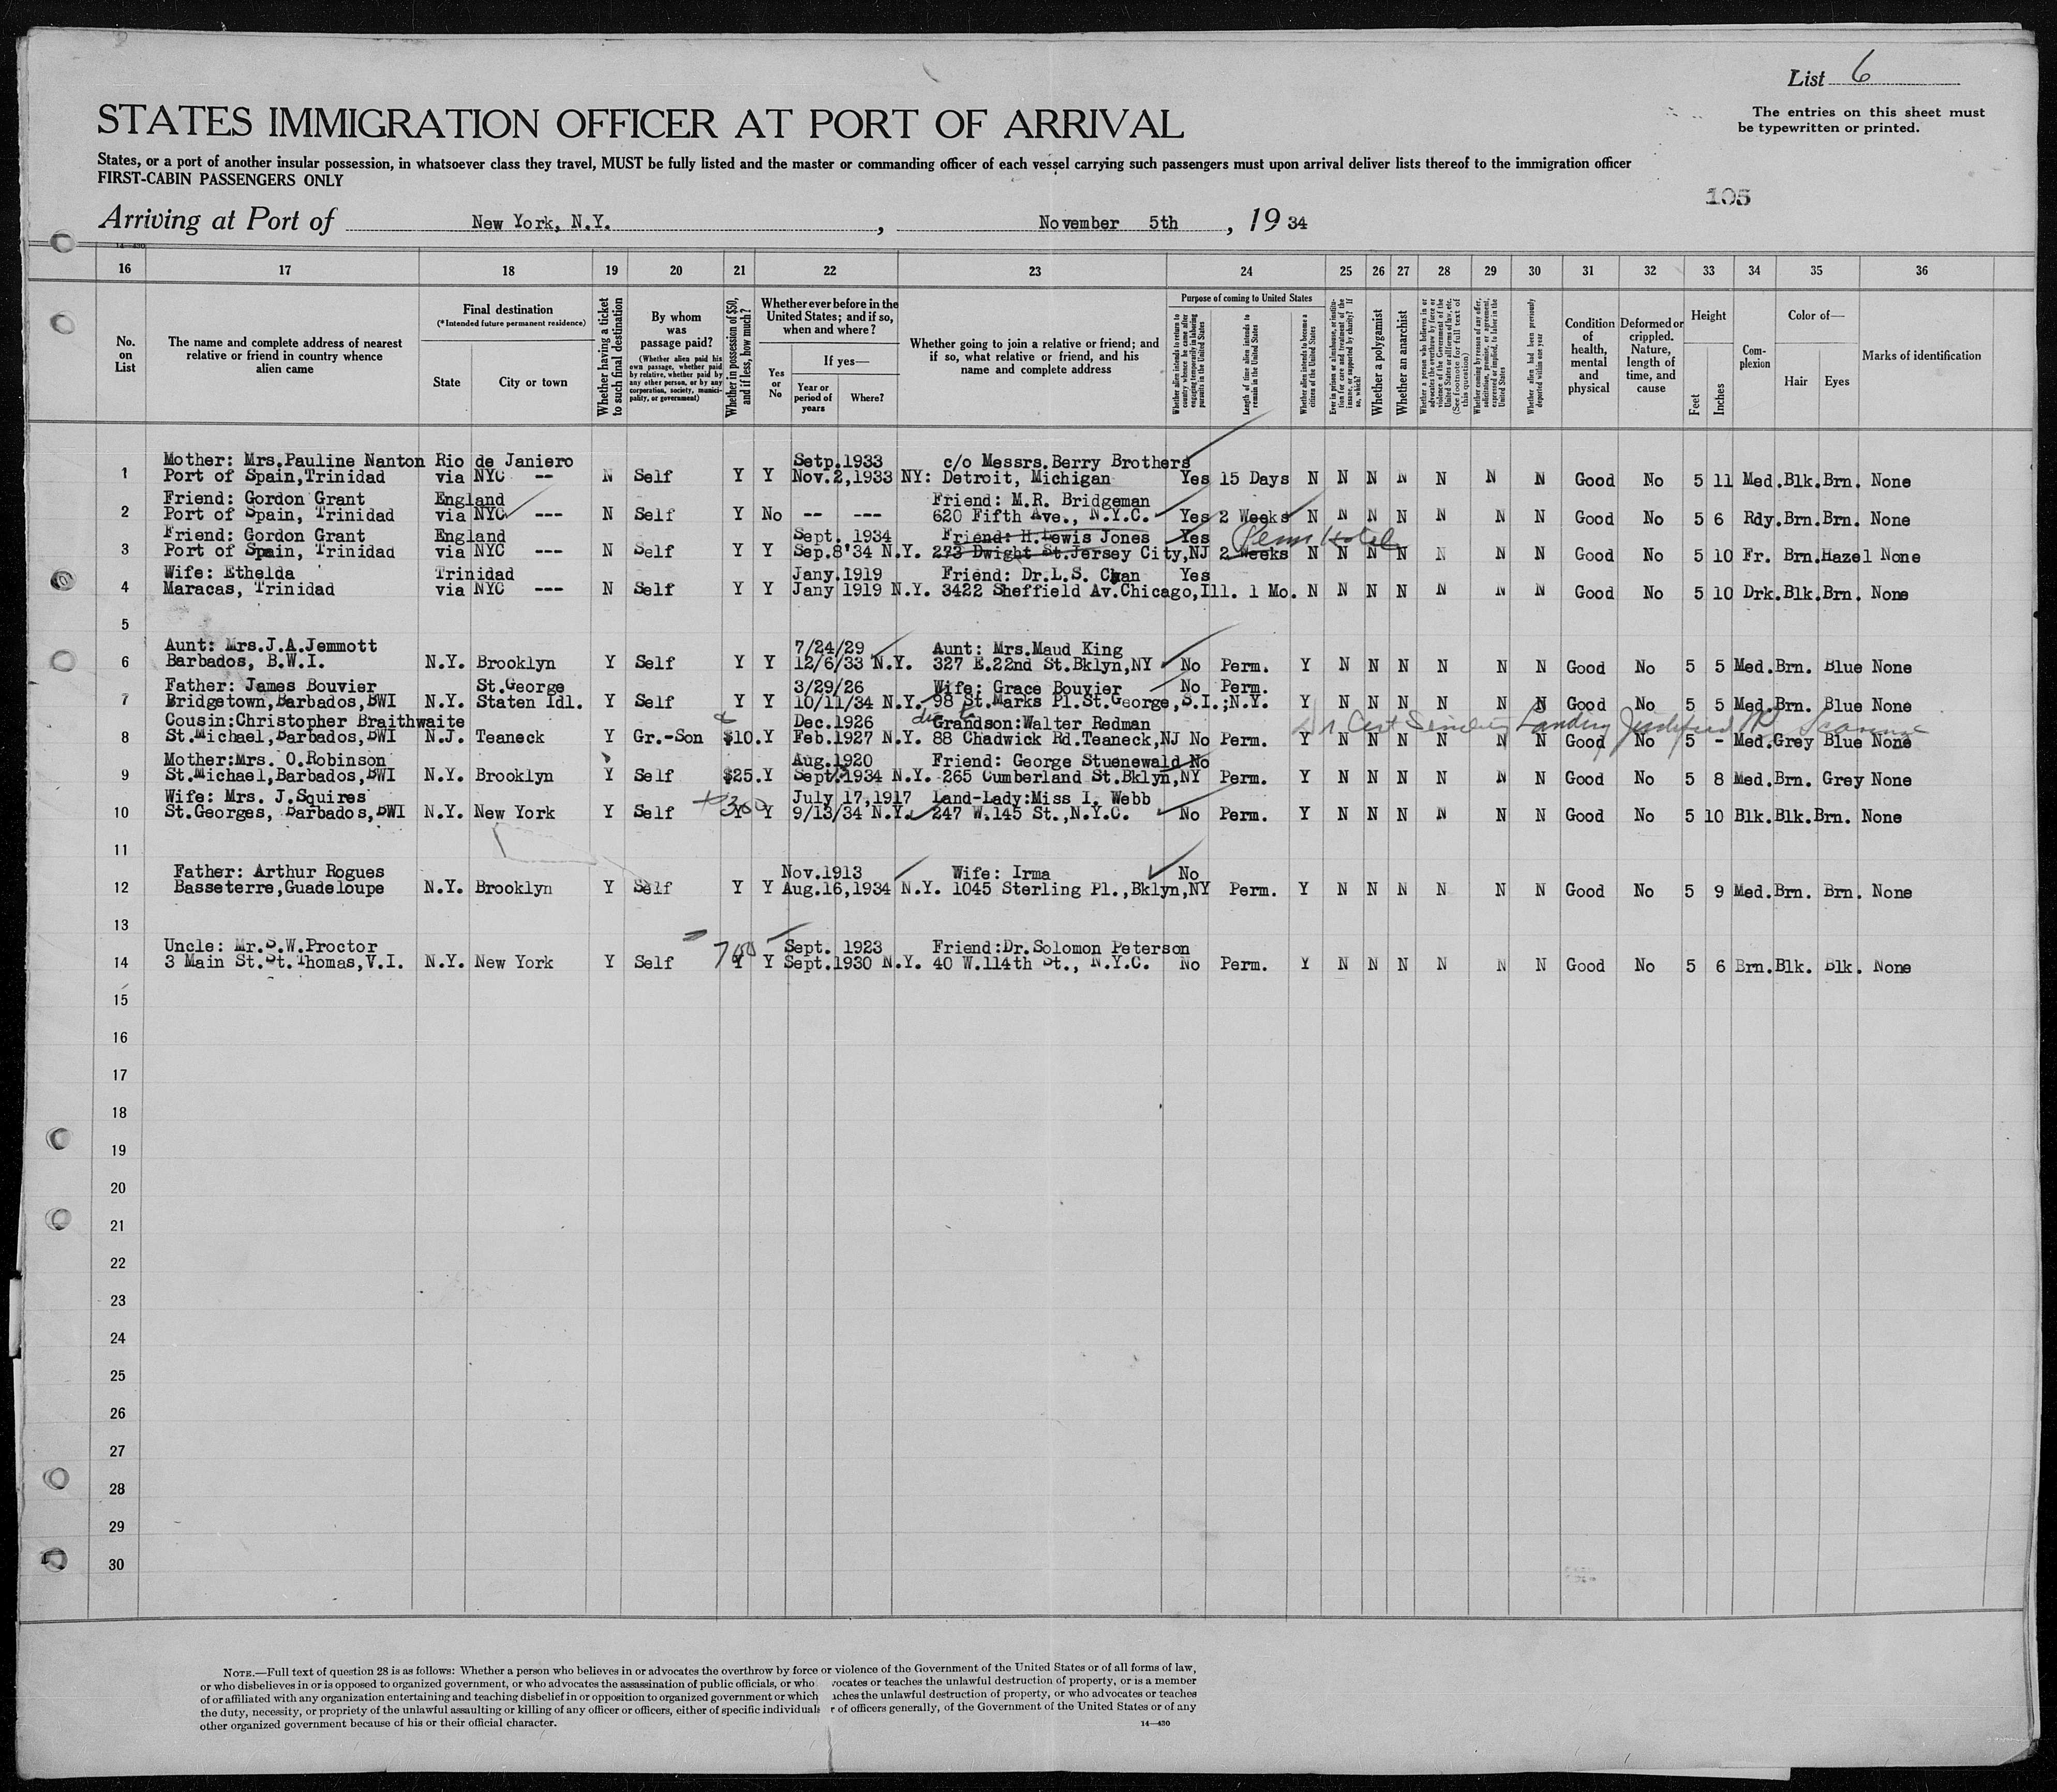 List 6
STATES IMMIGRATION OFFICER AT PORT OF ARRIVAL
The entries on this sheet must
be typewritten or printed.
States, or a port of another insular possession, in whatsoever class they travel, MUST be fully listed and the master or commanding officer of each vessel carrying such passengers must upon arrival deliver lists thereof to the immigration officer
FIRST-CABIN PASSENGERS ONLY
105
Arriving at Port of New York, N.Y. , November 5th , 19 34
14-430
16 17 18 19 20 21 22 23 24 25 26 27 28 29 30 31 32 33 34 35 36
No. on List
The name and complete address of nearest relative or friend in country whence alien came
Final destination
(*Intended future permanent residence)
State
City or town
Whether having a ticket to such final destination
By whom was passage paid?
(Whether alien paid his own passage, whether paid by relative, whether paid by any other person, or by any corporation, society, municipality, or government)
Whether in possession of $50, and if less, how much?
Whether ever before in the United States; and if so, when and where?
Yes or No
If yes—
Year or period of years
Where?
Whether going to join a relative or friend; and if so, what relative or friend, and his name and complete address
Purpose of coming to United States
Whether alien intends to return to country whence he came after engaging temporarily in laboring pursuits in the United States
Length of time alien intends to remain in the United States
Whether alien intends to become a citizen of the United States
Ever in prison or almshouse, or institution for care and treatment of the insane, or supported by charity? If so, which?
Whether a polygamist
Whether an anarchist
Whether a person who believes in or advocates the overthrow by force or violence of the Government of the United States or all forms of law, etc. (See footnote for full text of this question)
Whether coming by reason of any offer, solicitation, promise, or agreement, expressed or implied, to labor in the United States
Whether alien had been previously deported within one year
Condition of health, mental and physical
Deformed or crippled. Nature, length of time, and cause
Height
Feet
Inches
Complexion
Color of—
Hair
Eyes
Marks of identification
Mother: Mrs.Pauline Nanton Rio de Janiero Setp.1933 c/o Messrs.Berry Brothers
1 Port of Spain,Trinidad via NYC -- N Self Y Y Nov.2,1933 NY: Detroit, Michigan Yes 15 Days N N N N N N N Good No 5 11 Med.Blk.Brn. None
Friend: Gordon Grant England Friend: M.R. Bridgeman
2 Port of Spain, Trinidad via NYC --- N Self Y No -- --- 620 Fifth Ave., N.Y.C. Yes 2 Weeks N N N N N N N Good No 5 6 Rdy.Brn.Brn. None
Friend: Gordon Grant England Sept. 1934 Friend: H.Lewis Jones Yes Penn Hotel
3 Port of Spain, Trinidad via NYC --- N Self Y Y Sep.8'34 N.Y. 273 Dwight St.Jersey City,NJ 2 Weeks N N N N N N N Good No 5 10 Fr. Brn.Hazel None
Wife: Ethelda Trinidad Jany.1919 Friend: Dr.L.S. Chan Yes
4 Maracas, Trinidad via NYC --- N Self Y Y Jany 1919 N.Y. 3422 Sheffield Av.Chicago,Ill. 1 Mo. N N N N N N N Good No 5 10 Drk.Blk.Brn. None
5
Aunt: Mrs.J.A.Jemmott 7/24/29 Aunt: Mrs.Maud King
6 Barbados, B.W.I. N.Y. Brooklyn Y Self Y Y 12/6/33 N.Y. 327 E.22nd St.Bklyn,NY No Perm. Y N N N N N N Good No 5 5 Med.Brn. Blue None
Father: James Bouvier St.George 3/29/26 Wife: Grace Bouvier No Perm.
7 Bridgetown,Barbados,BWI N.Y. Staten Idl. Y Self Y Y 10/11/34 N.Y. 98 St.Marks Pl.St.George,S.I.;N.Y. Y N N N N N N Good No 5 5 Med.Brn. Blue None
Cousin:Christopher Braithwaite Dec.1926 Grandson:Walter Redman
8 St.Michael,Barbados,BWI N.J. Teaneck Y Gr.-Son $10.Y Feb.1927 N.Y. 88 Chadwick Rd.Teaneck,NJ No Perm. Y N N N N N N Good No 5 - Med.Grey Blue None
Mother:Mrs. O.Robinson Aug.1920 Friend: George Stuenewald No
9 St.Michael,Barbados,BWI N.Y. Brooklyn Y Self $25.Y Sept.1934 N.Y. 265 Cumberland St.Bklyn,NY Perm. Y N N N N N N Good No 5 8 Med.Brn. Grey None
Wife: Mrs. J.Squires 300 July 17,1917 Land-Lady:Miss I. Webb
10 St.Georges, Barbados,BWI N.Y. New York Y Self Y Y 9/13/34 N.Y. 247 W.145 St.,N.Y.C. No Perm. Y N N N N N N Good No 5 10 Blk.Blk.Brn. None
11
Father: Arthur Rogues Nov.1913 Wife: Irma No
12 Basseterre,Guadeloupe N.Y. Brooklyn Y Self Y Y Aug.16,1934 N.Y. 1045 Sterling Pl.,Bklyn,NY Perm. Y N N N N N N Good No 5 9 Med.Brn. Brn. None
13
Uncle: Mr.S.W.Proctor 700 Sept. 1923 Friend:Dr.Solomon Peterson
14 3 Main St.St.Thomas,V.I. N.Y. New York Y Self Y Y Sept.1930 N.Y. 40 W.114th St., N.Y.C. No Perm. Y N N N N N N Good No 5 6 Brn.Blk. Blk. None
15
16
17
18
19
20
21
22
23
24
25
26
27
28
29
30
NOTE.—Full text of question 28 is as follows: Whether a person who believes in or advocates the overthrow by force or violence of the Government of the United States or of all forms of law,
or who disbelieves in or is opposed to organized government, or who advocates the assassination of public officials, or who vocates or teaches the unlawful destruction of property, or is a member
of or affiliated with any organization entertaining and teaching disbelief in or opposition to organized government or which aches the unlawful destruction of property, or who advocates or teaches
the duty, necessity, or propriety of the unlawful assaulting or killing of any officer or officers, either of specific individuals r of officers generally, of the Government of the United States or of any
other organized government because of his or their official character.
14—430